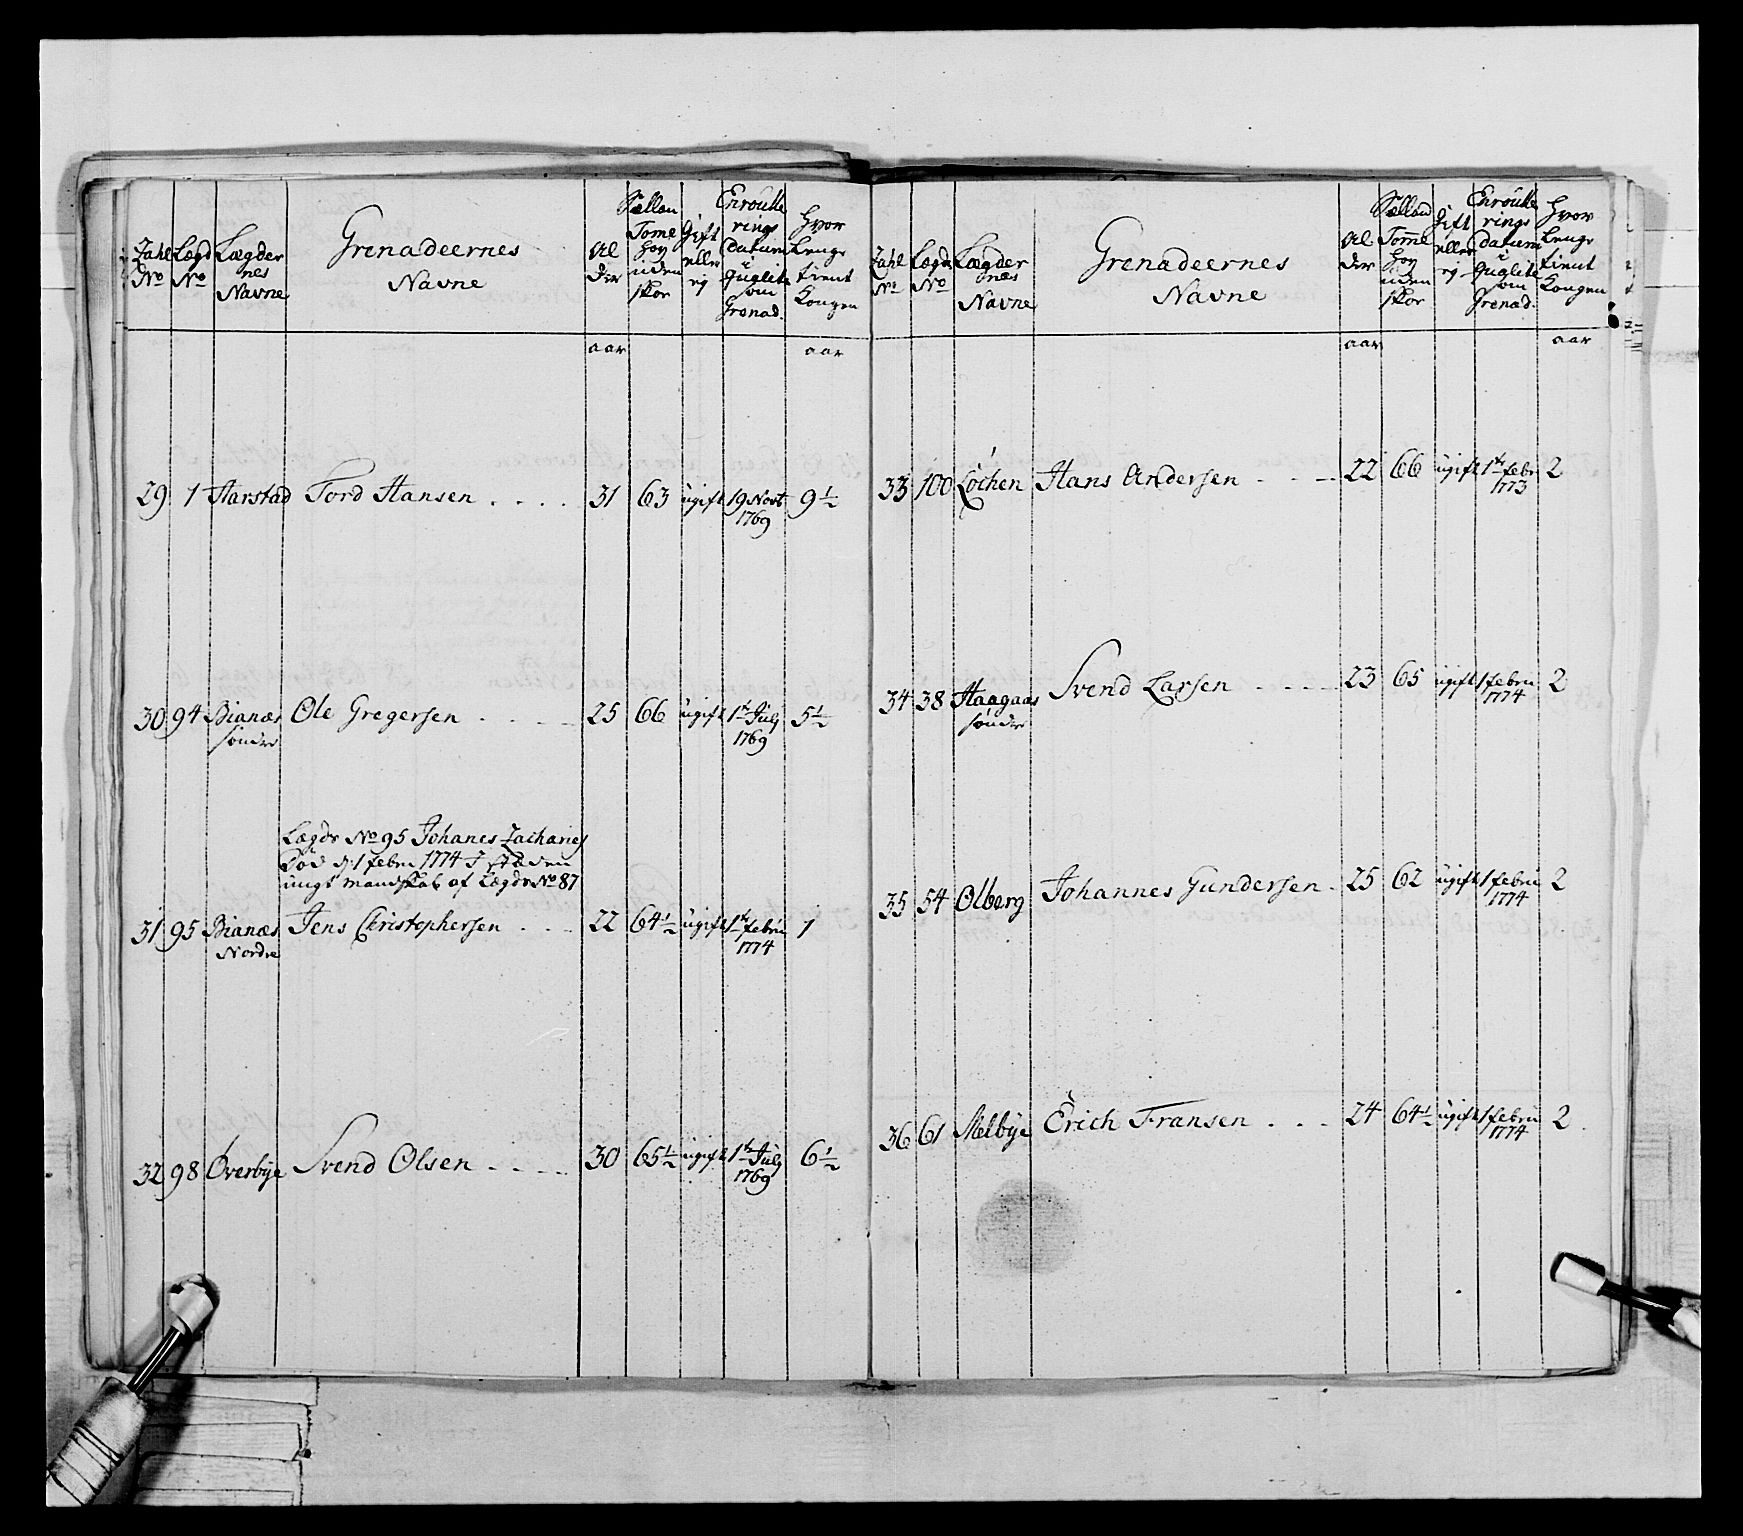 Zahl No | Lægd No | Lægdernes Navne | Grenadeernes Navne | Alder | Sælland Tome høy uden skor | Gift eller ej | Enroulle rings datum i Guglite som Grenad. | Hvor Lenge tient Kongen
aar | aar
29 | 1 | Harstad | Tord Hansen . . . . | 31 | 63 | ugift | 19 Novb 1769 | 9½
30 | 94 | Bianæs søndre | Ole Gregersen . . . . | 25 | 66 | ugift | 1te July 1769 | 5½
Lægds No 95 Johanes Zacharies
Død d: 1 febru 1774 I støden
ungt mandskab af Lægds No 87
31 | 95 | Bianæs Nordre | Jens Christophersen . . . | 22 | 64½ | ugift | 1te febru 1774 | 1
32 | 98 | Øverbye | Svend Olsen . . . . | 30 | 65½ | ugift | 1te July 1769 | 6½
Zahl No | Lægd No | Lægdernes Navne | Grenadeernes Navne | Alder | Sælland Tomme høy uden skor | Gift eller ej | Enroulle rings datum i Guglite som Grenad. | Hvor Lenge tient Kongen
aar | aar
33 | 100 | Løchen | Hans Andersen . . . | 22 | 66 | ugift | 1te febru 1773 | 2
34 | 38 | Haagaas søndre | Svend Larsen . . . . | 23 | 65 | ugift | 1 febru 1774 | 2
35 | 54 | Olberg | Johannes Gundersen . | 25 | 62 | ugift | 1 febru 1774 | 2
36 | 61 | Melbye | Erich Fransen . . . | 24 | 64½ | ugift | 1 febru 1774 | 2